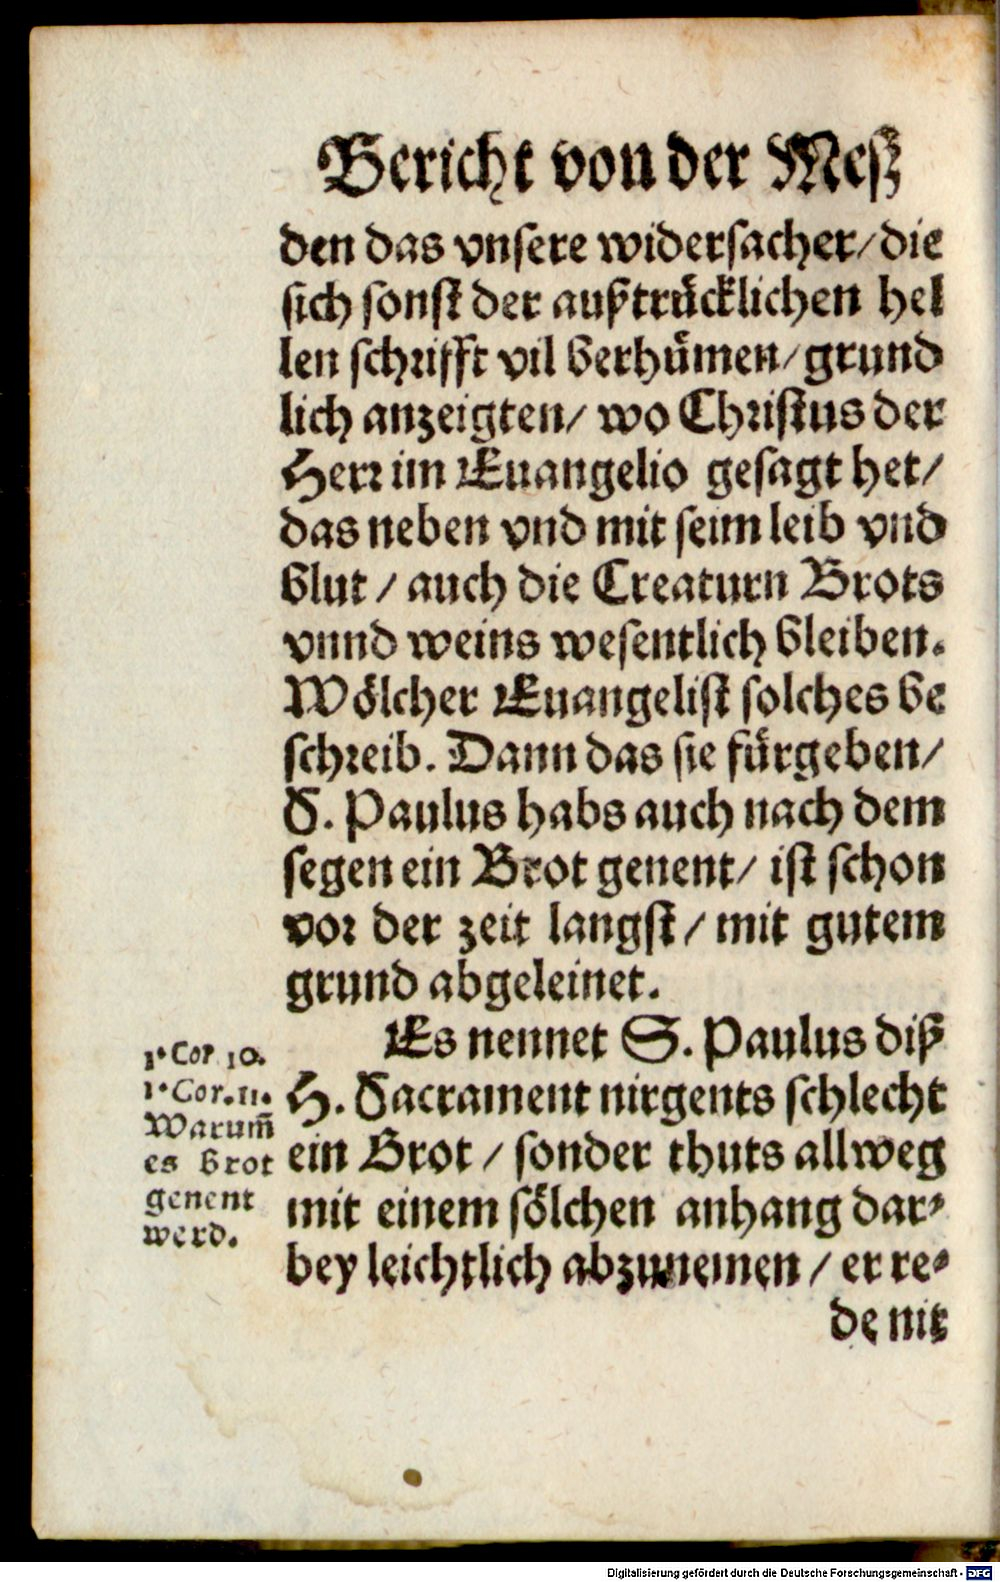 Bericht von der Meß
den das vnsere widersacher/ die
sich sonst der außtrücklichen hel
len schrifft vil berhümen/ grund
lich anzeigten/ wo Christus der
Herr im Euangelio gesagt het/
das neben vnd mit seim leib vnd
blut / auch die Creaturn Brots
vnnd weins wesentlich bleiben.
Wölcher Euangelist solches be
schreib. Dann das sie fürgeben/
S. Paulus habs auch nach dem
segen ein Brot genent/ ist schon
vor der zeit langst / mit gutem
grund abgeleinet.
Es nennet S. Paulus diß
H. Sacrament nirgents schlecht
ein Brot / sonder thuts allweg
mit einem sölchen anhang dar-
bey leichtlich abzunemen / er re-
de nit
1. Cor 10.
1. Cor. 11.
Warum̄
es Brot
genent
werd.
Digitalisierung gefördert durch die Deutsche Forschungsgemeinschaft - DFG